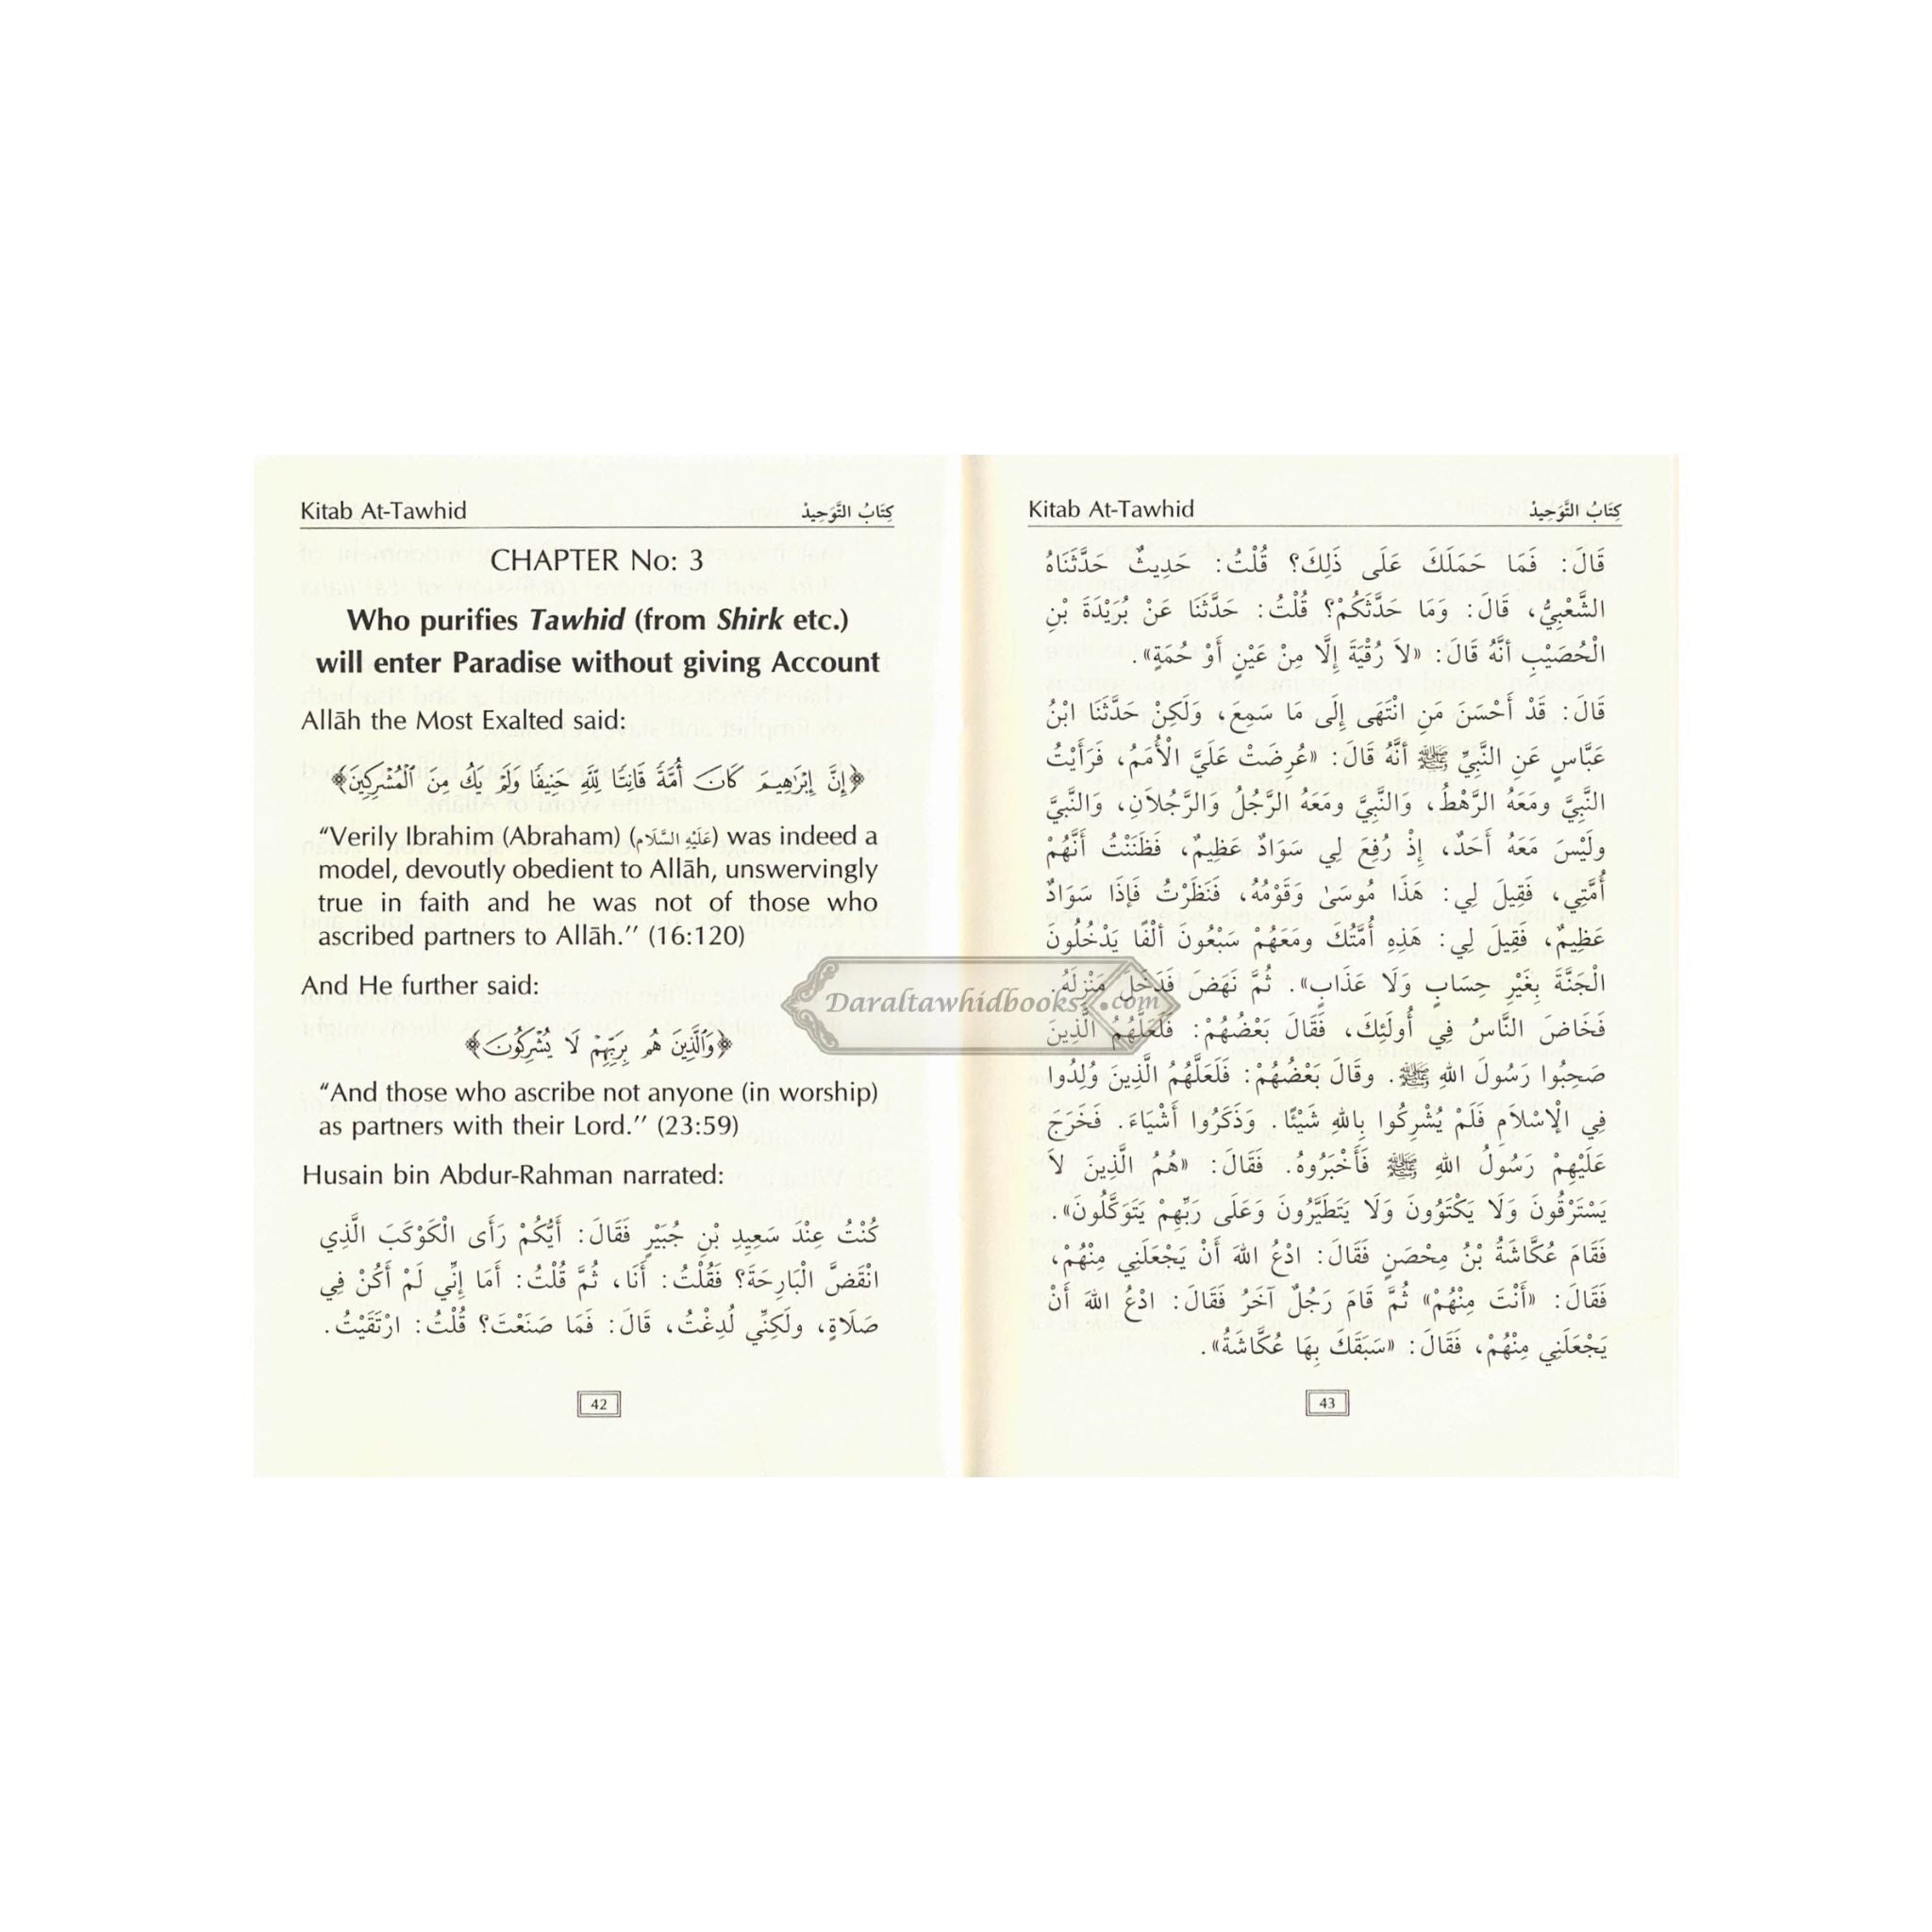 Kitab At-Tawhid كِتَابُ التَّوَحِيدْ
CHAPTER No: 3
Who purifies Tawhid (from Shirk etc.)
will enter Paradise without giving Account
Allāh the Most Exalted said:
﴿إِنَّ إِبْرَٰهِيمَ كَانَ أُمَّةً قَانِتًا لِّلَّهِ حَنِيفًا وَلَمْ يَكُ مِنَ ٱلْمُشْرِكِينَ﴾
“Verily Ibrahim (Abraham) (عَلَيْهِ السَّلَام) was indeed a
model, devoutly obedient to Allāh, unswervingly
true in faith and he was not of those who
ascribed partners to Allāh.’’ (16:120)
And He further said:
﴿وَٱلَّذِينَ هُم بِرَبِّهِمْ لَا يُشْرِكُونَ﴾
“And those who ascribe not anyone (in worship)
as partners with their Lord.’’ (23:59)
Husain bin Abdur-Rahman narrated:
كُنْتُ عِنْدَ سَعِيدِ بْنِ جُبَيْرٍ فَقَالَ: أَيُّكُمْ رَأَى الْكَوْكَبَ الَّذِي
انْقَضَّ الْبَارِحَةَ؟ فَقُلْتُ: أَنَا، ثُمَّ قُلْتُ: أَمَا إِنِّي لَمْ أَكُنْ فِي
صَلَاةٍ، ولَكِنِّي لُدِغْتُ، قَالَ: فَمَا صَنَعْتَ؟ قُلْتُ: ارْتَقَيْتُ.
42
Kitab At-Tawhid كِتَابُ التَّوَحِيدْ
قَالَ: فَمَا حَمَلَكَ عَلَى ذَلِكَ؟ قُلْتُ: حَدِيثٌ حَدَّثَنَاهُ
الشَّعْبِيُّ، قَالَ: وَمَا حَدَّثَكُمْ؟ قُلْتُ: حَدَّثَنَا عَنْ بُرَيْدَةَ بْنِ
الْحُصَيْبِ أنَّهُ قَالَ: «لاَ رُقْيَةَ إِلَّا مِنْ عَيْنٍ أَوْ حُمَةٍ».
قَالَ: قَدْ أَحْسَنَ مَنِ انْتَهَى إِلَى مَا سَمِعَ، وَلَكِنْ حَدَّثَنَا ابْنُ
عَبَّاسٍ عَنِ النَّبِيِّ ﷺ أنَّهُ قَالَ: «عُرِضَتْ عَلَيَّ الْأُمَمُ، فَرَأَيْتُ
النَّبِيَّ ومَعَهُ الرَّهْطُ، وَالنَّبِيَّ ومَعَهُ الرَّجُلُ وَالرَّجُلاَنِ، وَالنَّبِيَّ
ولَيْسَ مَعَهُ أَحَدٌ، إِذْ رُفِعَ لِي سَوَادٌ عَظِيمٌ، فَظَنَنْتُ أَنَّهُمْ
أُمَّتِي، فَقِيلَ لِي: هَذَا مُوسَىٰ وَقَوْمُهُ، فَنَظَرْتُ فَإذَا سَوَادٌ
عَظِيمٌ، فَقِيلَ لِي: هَذِهِ أُمَّتُكَ ومَعَهُمْ سَبْعُونَ ألْفًا يَدْخُلُونَ
الْجَنَّةَ بِغَيْرِ حِسَابٍ وَلَا عَذَابٍ». ثُمَّ نَهَضَ فَدَخَلَ مَنْزِلَهُ.
Daraltawhidbooks.com
فَخَاضَ النَّاسُ فِي أُولَئِكَ، فَقَالَ بَعْضُهُمْ: فَلَعَلَّهُمُ الَّذِينَ
صَحِبُوا رَسُولَ اللهِ ﷺ. وقَالَ بَعْضُهُمْ: فَلَعَلَّهُمُ الَّذِينَ وُلِدُوا
فِي الْإسْلاَمِ فَلَمْ يُشْرِكُوا بِاللهِ شَيْئًا. وَذَكَرُوا أَشْيَاءَ. فَخَرَجَ
عَلَيْهِمْ رَسُولُ اللهِ ﷺ فَأَخْبَرُوهُ. فَقَالَ: «هُمُ الَّذِينَ لاَ
يَسْتَرْقُونَ وَلَا يَكْتَوُونَ وَلَا يَتَطَيَّرُونَ وَعَلَى رَبِّهِمْ يَتَوَكَّلُونَ».
فَقَامَ عُكَّاشَةُ بْنُ مِحْصَنٍ فَقَالَ: ادْعُ اللهَ أَنْ يَجْعَلَنِي مِنْهُمْ،
فَقَالَ: «أَنْتَ مِنْهُمْ» ثُمَّ قَامَ رَجُلٌ آخَرُ فَقَالَ: ادْعُ اللهَ أَنْ
يَجْعَلَنِي مِنْهُمْ، فَقَالَ: «سَبَقَكَ بِهَا عُكَّاشَةُ».
43